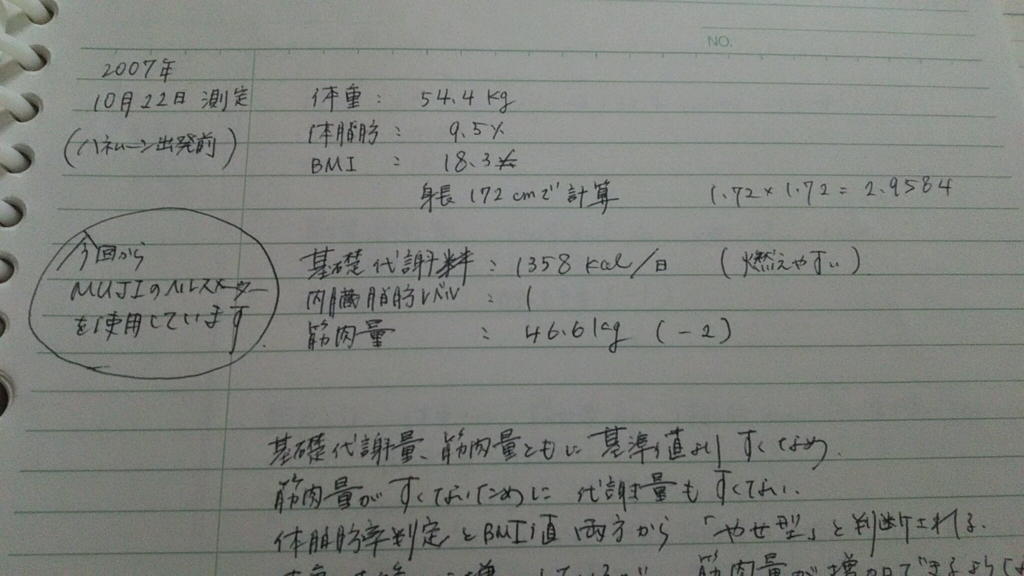 NO.
2007年
10月22日 測定
(ハネムーン出発前)
体重: 54.4 kg
体脂肪: 9.5%
BMI: 18.3
身長 172cmで計算 1.72×1.72=2.9584
今回から
MUJIのヘルスメーター
を使用しています
基礎代謝: 1358 kcal/日 (燃えやすい)
内臓脂肪レベル: 1
筋肉量: 46.6kg (-2)
基礎代謝量、筋肉量ともに基準値よりすくなめ.
筋肉量がすくないために代謝量もすくない.
体脂肪率判定とBMI値両方から「やせ型」と判断される.
筋肉量が増加できるように